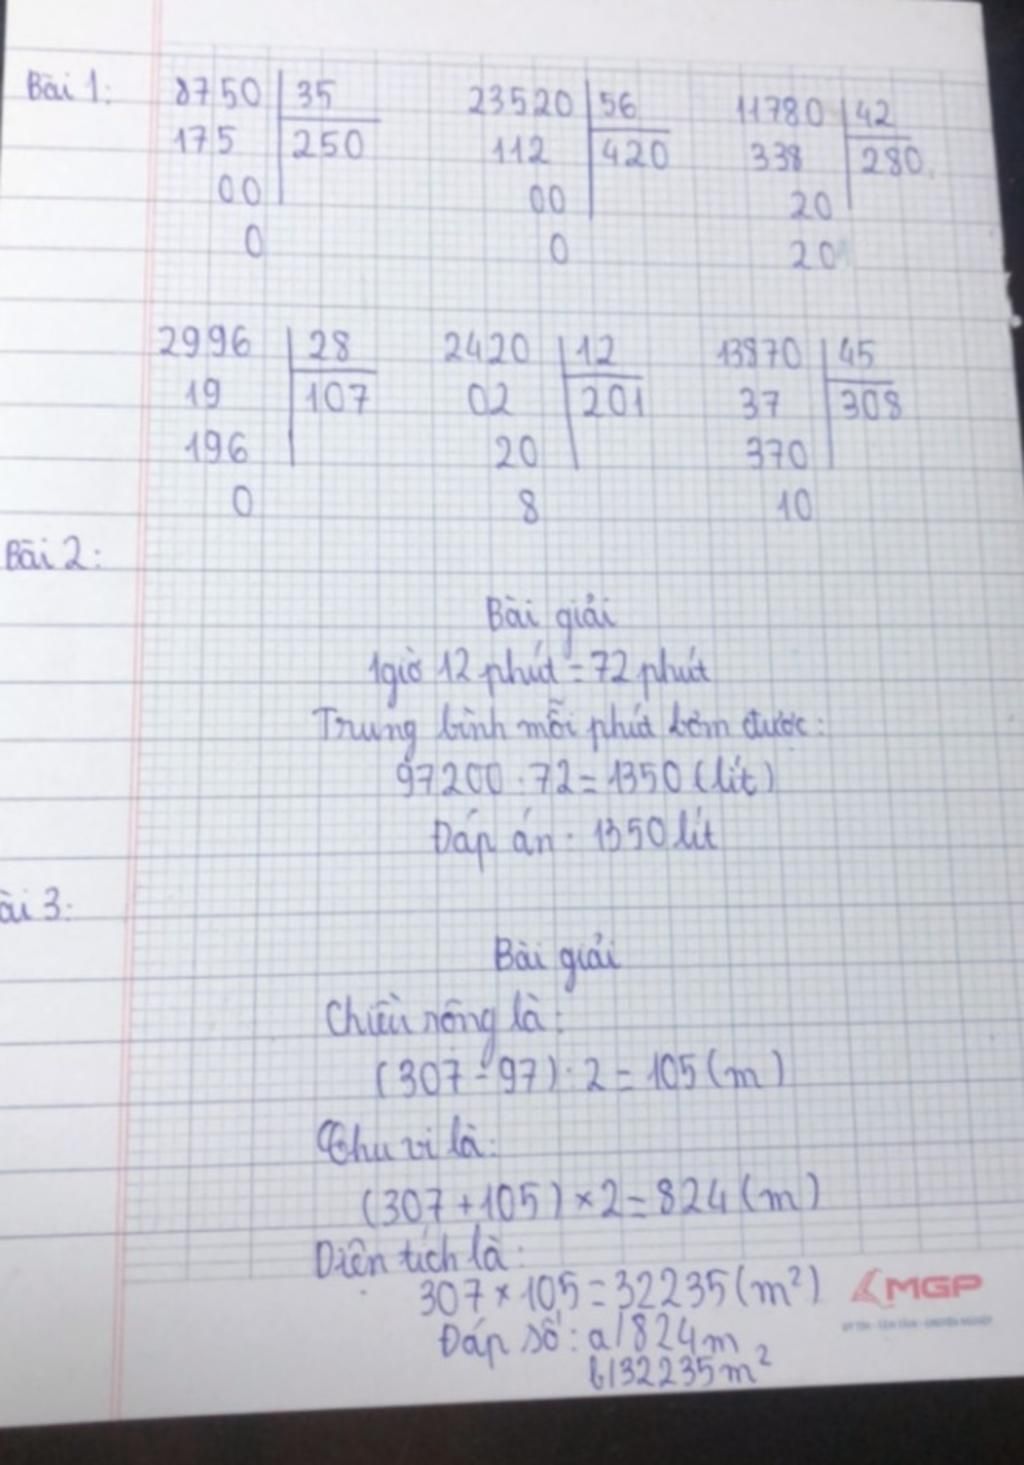 Bài 1:
8750 35 23520 56 11780 42
175 250 112 420 338 280
00 00 20
0 0 20
2996 28 2420 12 13870 45
19 107 02 201 37 308
196 20 370
0 8 10
Bài 2:
Bài giải
1giờ 12 phút = 72 phút
Trung bình mỗi phút bơm được:
97200 : 72 = 1350 (lít)
Đáp án : 1350 lít
ài 3:
Bài giải
Chiều rộng là:
(307 - 97) : 2 = 105 (m)
Chu vi là:
(307 + 105) × 2 = 824 (m)
Diện tích là:
307 × 105 = 32235 (m²)
MGP
Đáp số: a/ 824 m
b/ 32235 m²